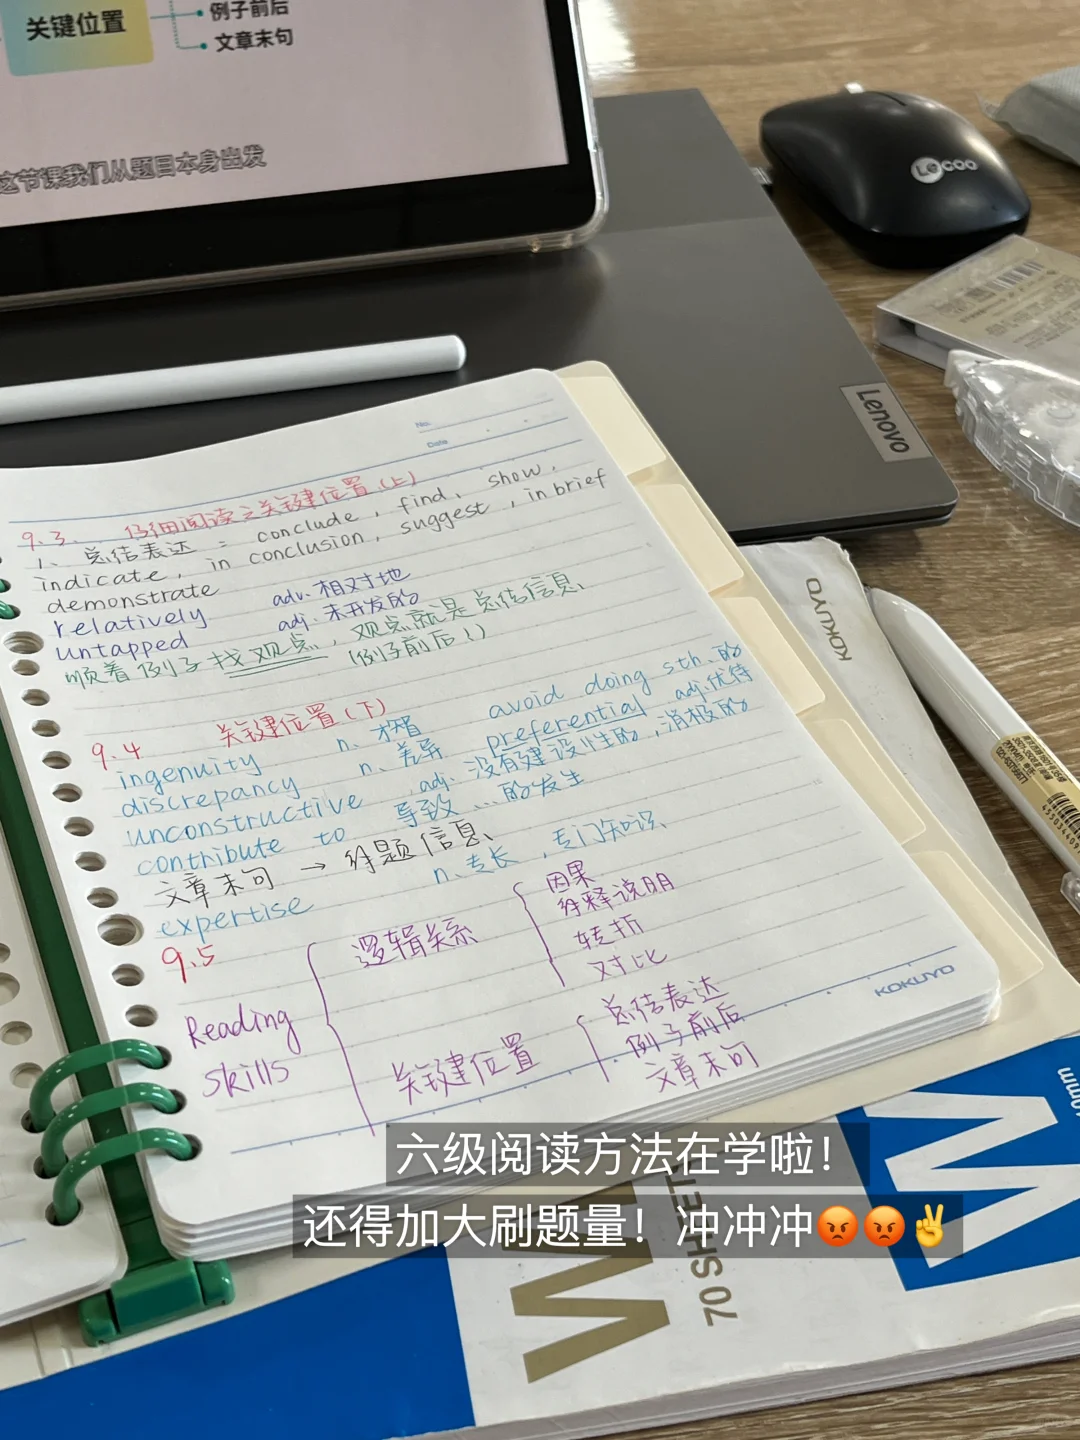 关键位置
例子前后
文章末句
这节课我们从题目本身出发
LeCOO
Lenovo
KOKUYO
No.
Date
9.3. 仔细阅读之关键位置(上)
1. 总结表达: conclude, find, show,
indicate, in conclusion, suggest, in brief
demonstrate
relatively adv. 相对地
untapped adj. 未开发的
顺着例子找观点, 观点就是总结信息、
(例子前后!)
9.4 关键位置(下)
ingenuity n. 才智 avoid doing sth. 的
discrepancy n. 差异 preferential adj. 优待
unconstructive adj. 没有建设性的, 消极的
contribute to 导致...的发生
文章末句 → 解题信息、
expertise n. 专长, 专门知识、
9.5
Reading
skills
逻辑关系
因果
解释说明
转折
对比
关键位置
总结表达
例子前后
文章末句
KOKUYO
六级阅读方法在学啦!
还得加大刷题量!冲冲冲😡😡✌️
70 SHEET